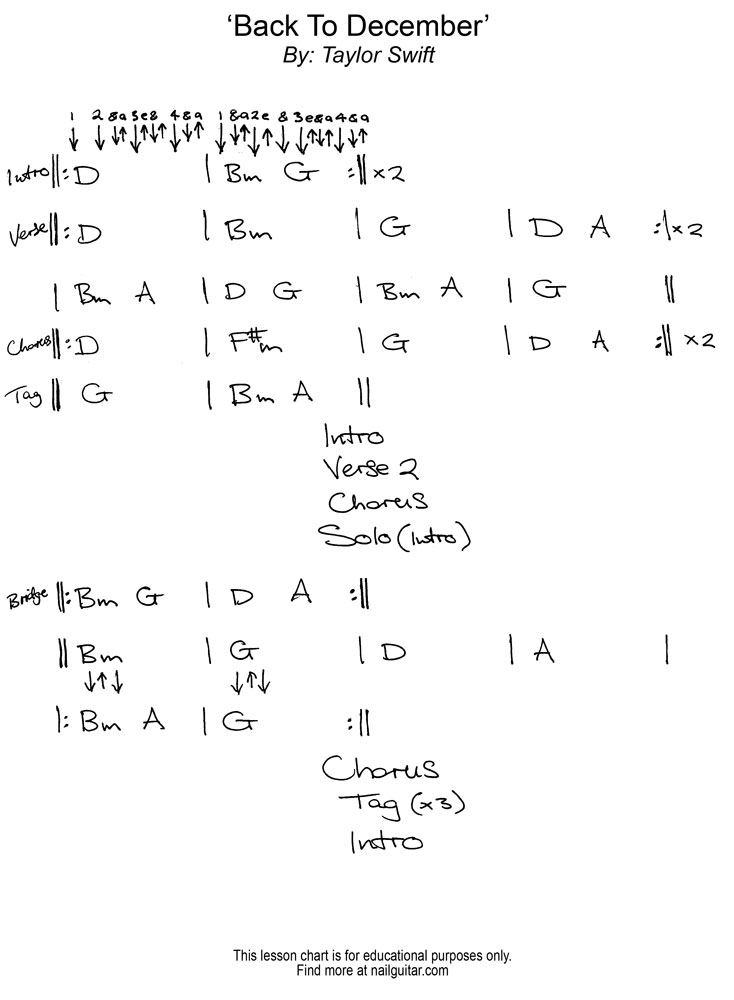 ‘Back To December’
By: Taylor Swift
1 2 & a 3 e & 4 & a 1 & a 2 e & 3 e & a 4 & a
Intro ||: D | Bm G :|| x2
Verse ||: D | Bm | G | D A :| x2
| Bm A | D G | Bm A | G ||
Chorus ||: D | F#m | G | D A :|| x2
Tag || G | Bm A ||
Intro
Verse 2
Chorus
Solo (Intro)
Bridge ||: Bm G | D A :||
|| Bm | G | D | A |
↓↑↓ ↓↑↓
|: Bm A | G :||
Chorus
Tag (x3)
Intro
This lesson chart is for educational purposes only.
Find more at nailguitar.com